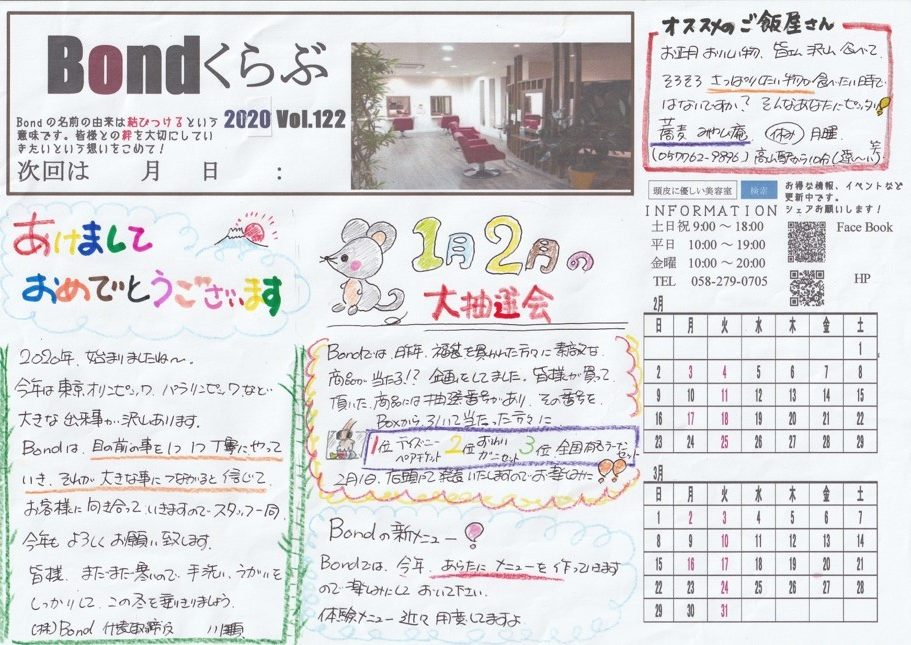 Bondくらぶ
Bondの名前の由来は結びつけるという
意味です。皆様との絆を大切にしてい
きたいという想いをこめて！
2020 Vol.122
次回は 月 日 ：
オススメのご飯屋さん
お正月おいしい物、皆さん沢山食べて
そろそろさっぱりしたい物が食べたい時で
はないですか？そんなあなたにピッタリ
蕎麦 みやし庵 休み 月曜
高山駅から10分
頭皮に優しい美容室 検索
お得な情報、イベントなど
更新中です。
シェアお願いします！
INFORMATION
土日祝 9:00 ～ 18:00
平日 10:00 ～ 19:00
金曜 10:00 ～ 20:00
TEL 058-279-0705
Face Book
HP
あけまして
おめでとうございます
2020年、始まりましたね～。
今年は東京オリンピック、パラリンピックなど
大きな出来事が沢山あります。
Bondは、目の前の事を1つ1つ丁寧にやって
いき、それが大きな事につながると信じて
お客様に向き合っていきますのでスタッフ一同
今年もよろしくお願い致します。
皆様、まだまだ寒いので、手洗い、うがいを
しっかりして、この冬を乗りきりましょう。
(株)Bond 代表取締役
1月2月の
大抽選会
Bondでは、昨年、福袋を買われた方々に素敵な
商品が当たる!?企画をしてました。皆様が買って
頂いた商品には抽選番号があり、その番号を
Boxから引いて当たった方々に
1位 ディズニーペアチケット 2位 ずわいガニセット 3位 全国有名ラーメンセット
2月1日、店頭にて発表いたしますのでお楽しみに
Bondの新メニュー
Bondでは、今年、あらたにメニューを作っていきます
ので楽しみにしておいて下さい。
体験メニュー近々用意してますよ
2月
日 月 火 水 木 金 土
1
2 3 4 5 6 7 8
9 10 11 12 13 14 15
16 17 18 19 20 21 22
23 24 25 26 27 28 29
3月
日 月 火 水 木 金 土
1 2 3 4 5 6 7
8 9 10 11 12 13 14
15 16 17 18 19 20 21
22 23 24 25 26 27 28
29 30 31